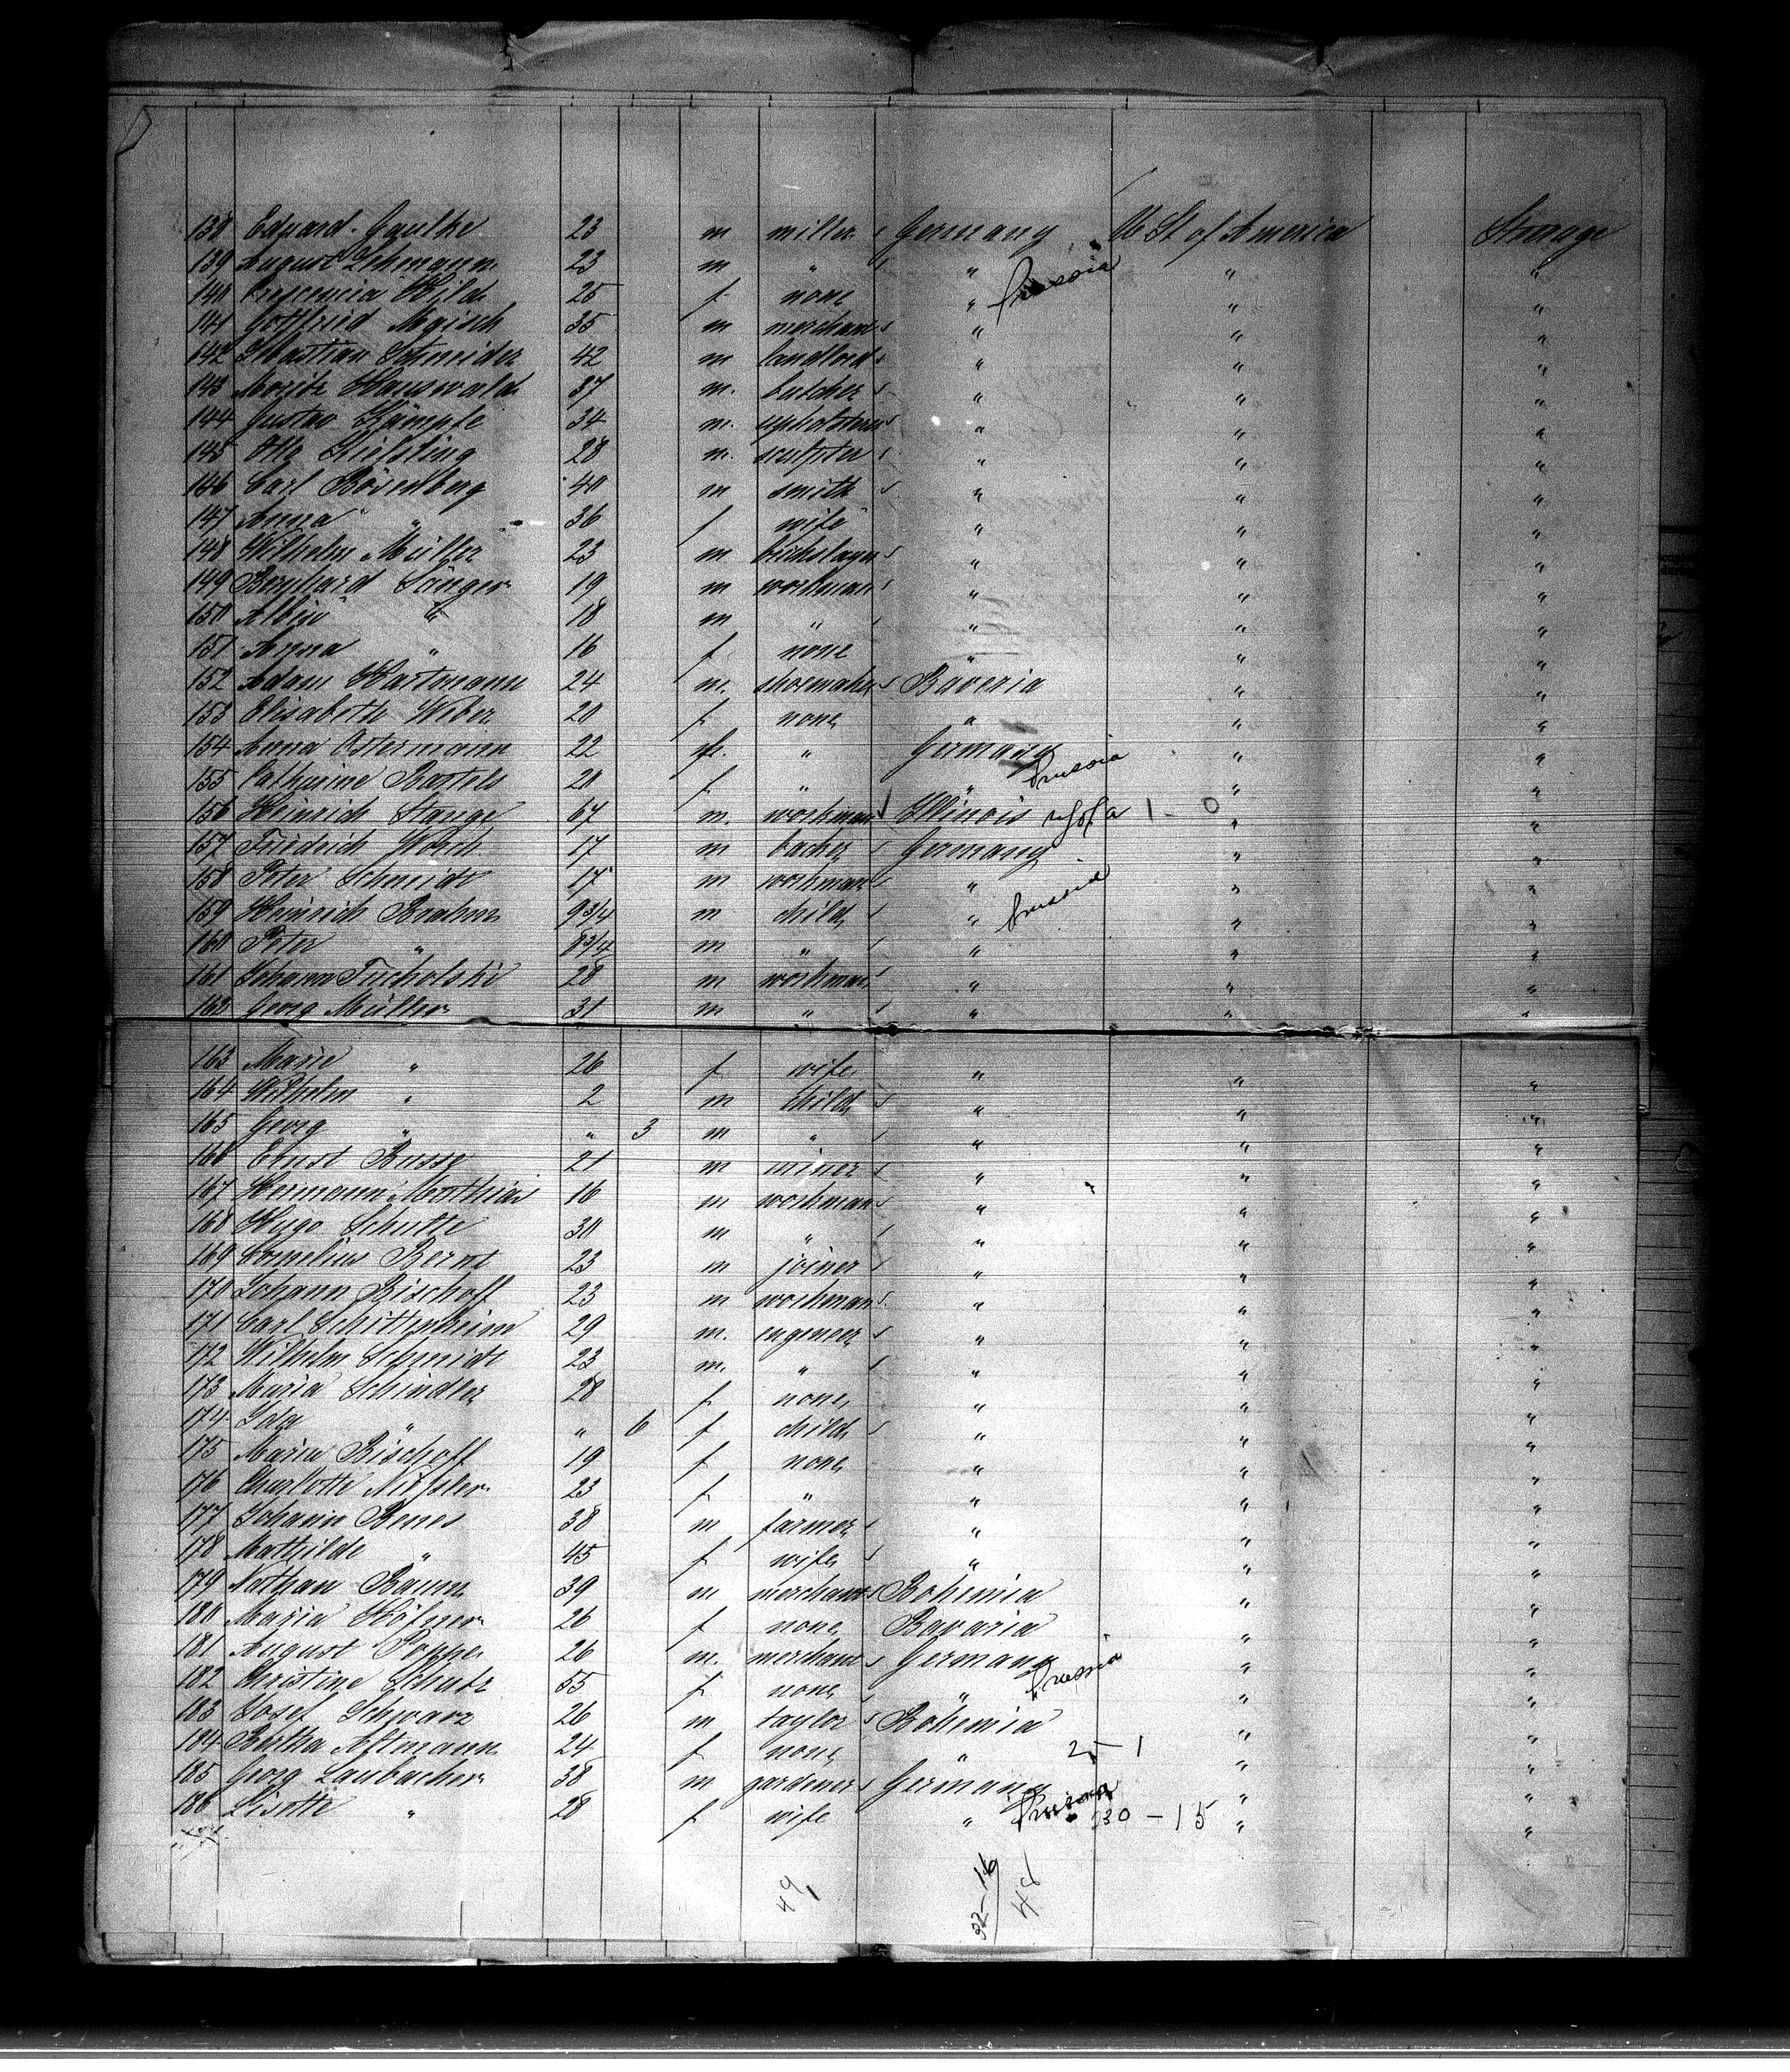 138 Eduard Gaulke 23 m miller Germany U St of America Steerage
139 August Lehmann 23 m " " Prussia " "
140 Crescencia Wild 25 f none " " "
141 Gottfried 35 m merchant " " "
142 Sebastian Schneider 42 m landlord " " "
143 Moritz Hauswald 37 m. butcher " " "
144 Gustav Kämpfe 34 m. " " "
145 Otto Kiessling 28 m. sculpter " " "
146 Carl Bösenberg 40 m smith " " "
147 Anna " 36 f wife " " "
148 Wilhelm Müller 23 m " " "
149 Bernhard Sänger 19 m workman " " "
150 Albin " 18 m " " " "
151 Anna " 16 f none " " "
152 Adam Hartmann 24 m. shoemaker Baveria " "
153 Elisabeth Weber 20 f none " " "
154 Anna Ostermann 22 f. " Germany " "
155 Catharine Bartels 20 f " " Prussia " "
156 Heinrich Stange 67 m. workman Illinois U S of A 1 - 0 " "
157 Friedrich 17 m backer Germany " "
158 Peter Schmidt 17 m workman " " "
159 Heinrich Brahms 9 3/4 m child " Prussia " "
160 Peter " 8 3/4 m " " " "
161 Johann Tucholski 28 m workman " " "
162 Georg Müller 31 m " " " "
163 Marie " 26 f wife " " "
164 Wilhelm " 2 m child " " "
165 Georg " " 3 m " " " "
166 Ernst Busse 21 m miner " " "
167 Hermann Matthias 16 m workman " " "
168 Hugo Schutte 30 m " " " "
169 Cornelius Bernt 23 m joiner " " "
170 Johann Bischoff 23 m workman " " "
171 Carl Schittenhelm 29 m. engeneer " " "
172 Wilhelm Schmidt 23 m. " " " "
173 Maria Schindler 28 f none " " "
174 Ida " " 6 f child " " "
175 Maria Bischoff 19 f none " " "
176 Charlotte 23 f " " " "
177 Johann Benes 38 m farmer " " "
178 Mathilde " 45 f wife " " "
179 Nathan Baum 39 m merchant Bohemia " "
180 Maria Höfner 26 f none Bavaria " "
181 August Poppe 26 m. merchant Germany " "
182 Christine Schatz 55 f none " Prussia " "
183 Josef Schwarz 26 m taylor Bohemia " "
184 Bertha 24 f none " 2 - 1 " "
185 Georg Laubacher 38 m gardener Germany " "
186 Lisette " 28 f wife " Prussia 30 - 15 " "
49 32 - 16 48